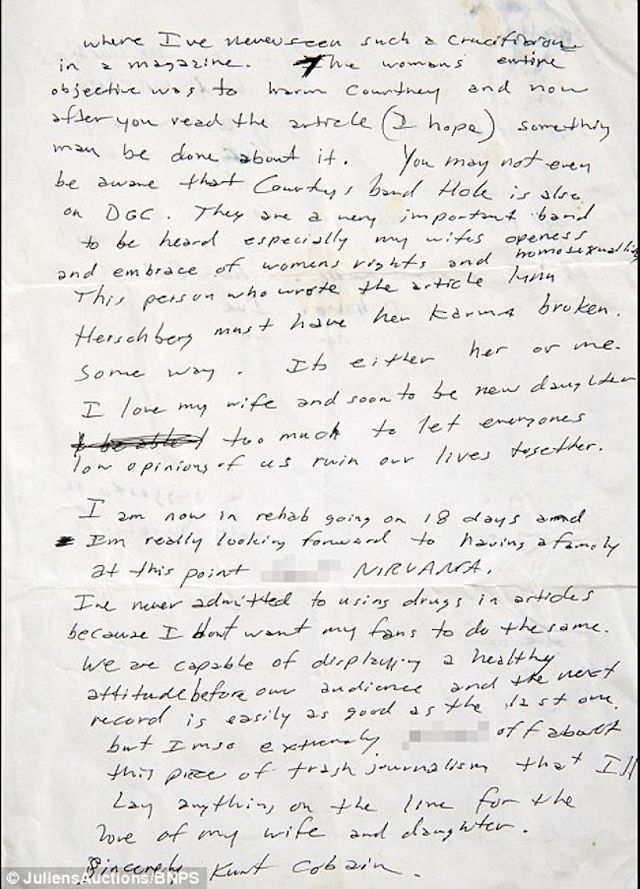 where I've never seen such a crucifixion
in a magazine. The womans entire
objective was to harm Courtney and now
after you read the article (I hope) something
may be done about it. You may not even
be aware that Courtneys band Hole is also
on DGC. They are a very important band
to be heard especially my wifes openess
and embrace of womens rights and homosexuality
This person who wrote the article lynn
Herschberg must have her Karma broken.
Some way. Its either her or me.
I love my wife and soon to be new daughter
too much to let everyones
low opinions of us ruin our lives together.
I am now in rehab going on 18 days and
Im really looking forward to having a family
at this point NIRVANA.
I've never admitted to using drugs in articles
because I dont want my fans to do the same.
We are capable of displaying a healthy
attitude before our audience and the next
record is easily as good as the last one.
but I'm so extremely off about
this piece of trash journalism that I'll
Lay anything on the line for the
love of my wife and daughter.
Sincerely Kurt Cobain.
© JuliensAuctions/BNPS